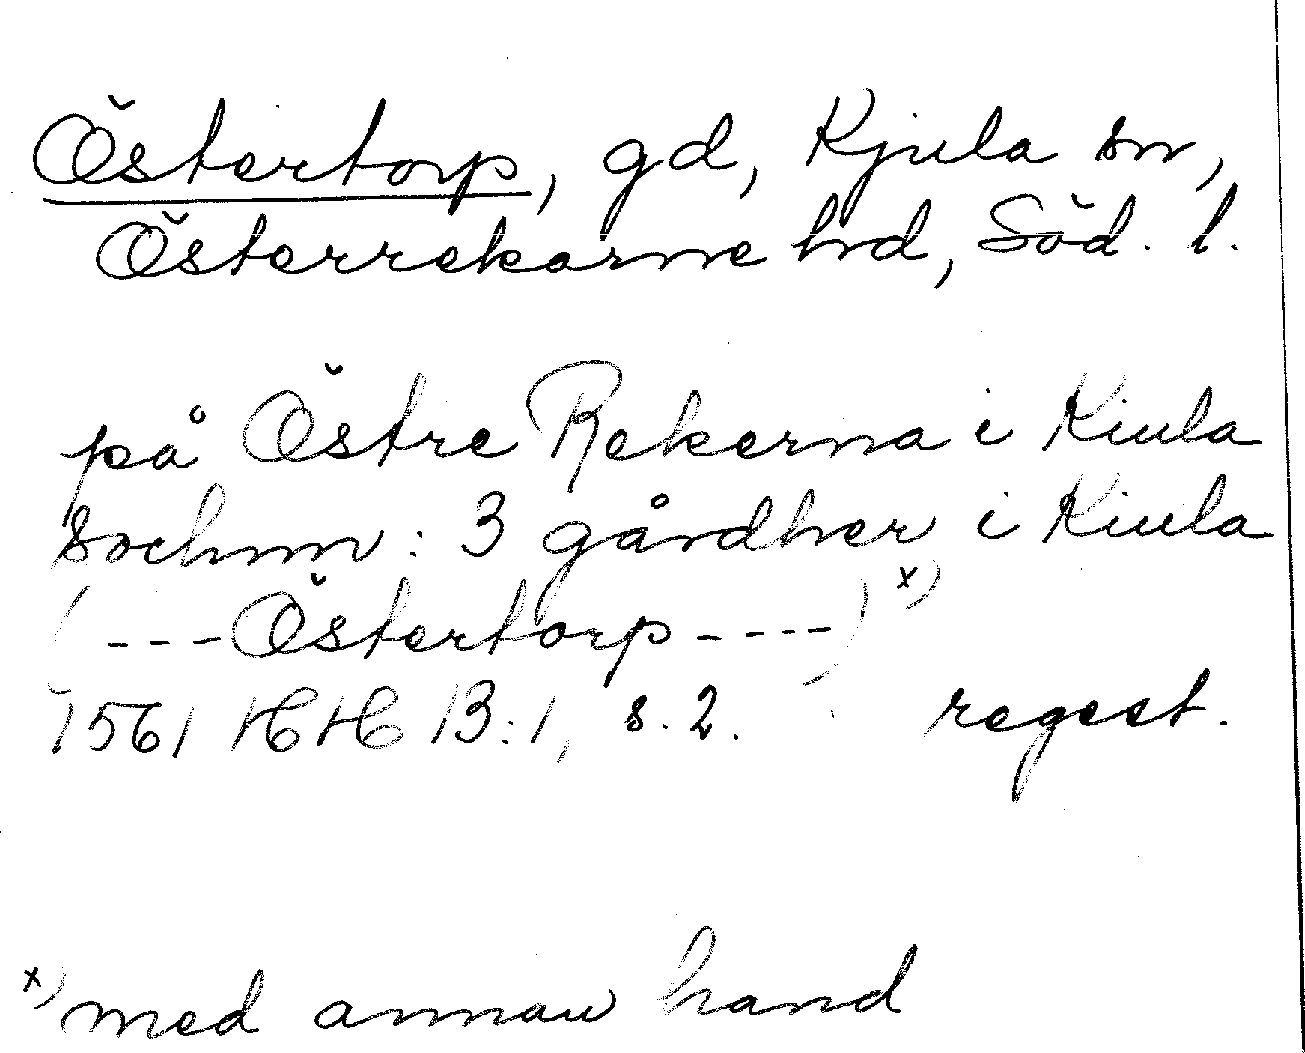 Östertorp, gd, Kjula sn,
Österrekarne hrd, Söd. l.
på Östre Rekerna i Kiula
sochnn: 3 gårdher i Kiula
(---Östertorp----) x)
1561 HH 13:1, s. 2. regest.
x) med annan hand